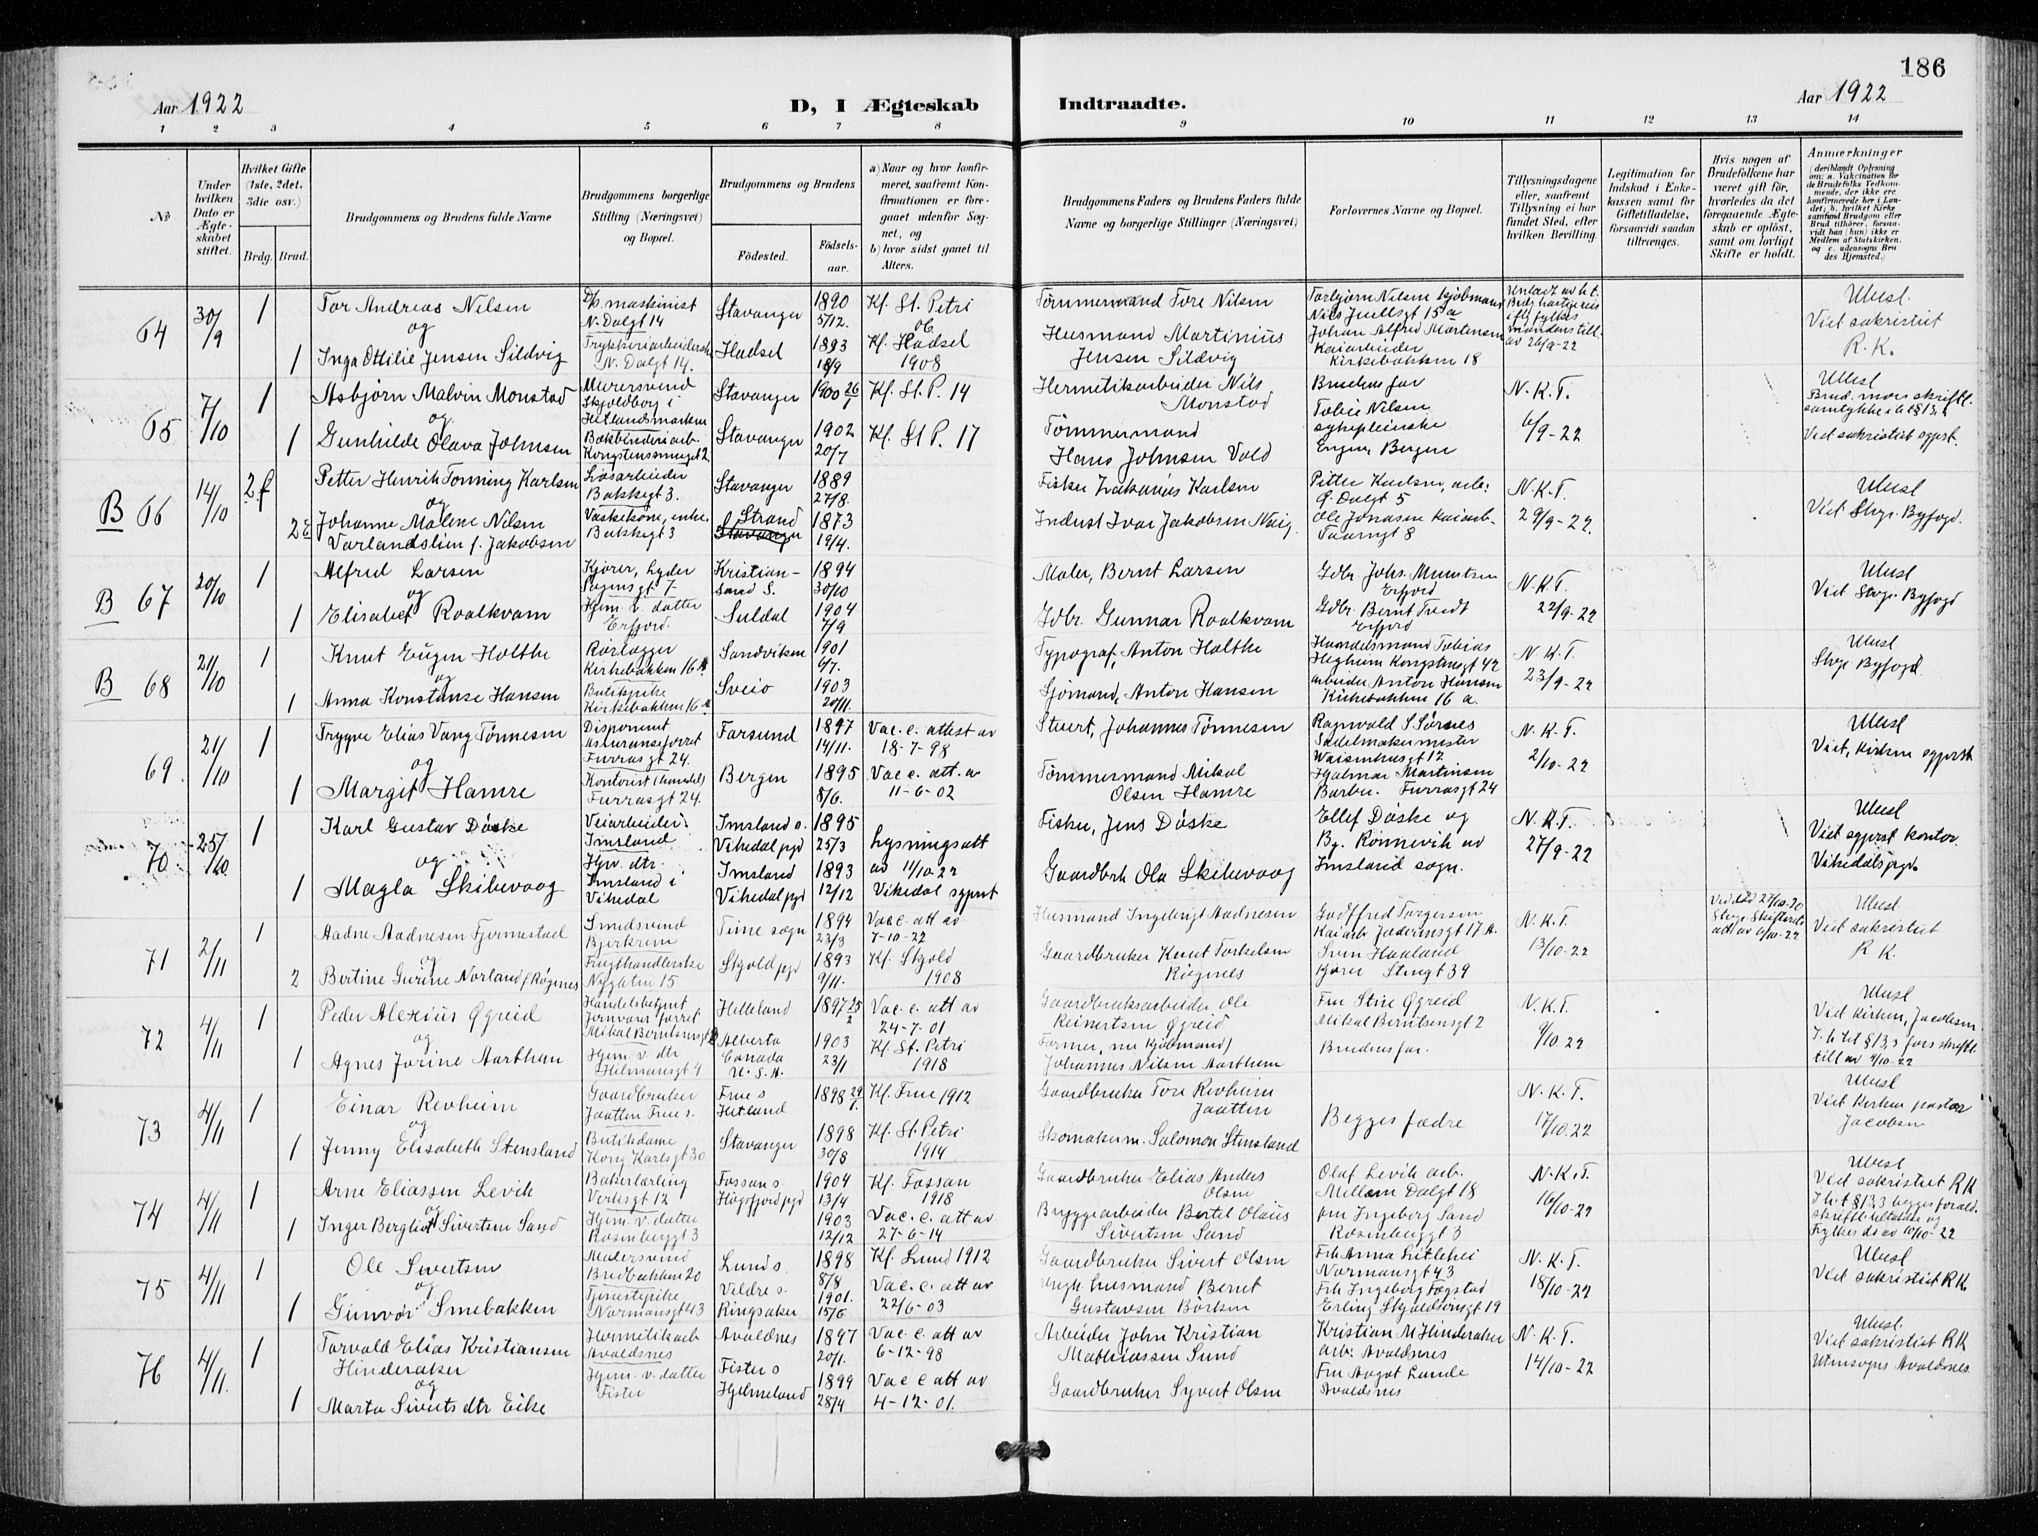 186
Aar 1922
D, I Ægteskab Indtraadte.
Aar 1922
1 2 3 4 5 6 7 8 9 10 11 12 13 14
№
Under hvilken Dato er Ægteskabet stiftet.
Hvilket Gifte (1ste, 2det, 3die osv.)
Brdg. Brud.
Brudgommens og Brudens fulde Navne
Brudgommens borgerlige Stilling (Næringsvei) og Bopæl.
Brudgommens og Brudens
Fødested.
Fødselsaar.
a) Naar og hvor konfirmeret, saafremt Konfirmationen er foregaaet udenfor Sognet, og
b) hvor sidst gaaet til Alters.
Brudgommens Faders og Brudens Faders fulde Navne og borgerlige Stillinger (Næringsvei)
Forlovernes Navne og Bopæl.
Tillysningsdagene eller, saafremt Tillysning ei har fundet Sted, efter hvilken Bevilling.
Legitimation for Indskud i Enkekassen samt for Giftetilladelse, forsaavidt saadan tiltrænges.
Hvis nogen af Brudefolkene har været gift før, hvorledes da det foregaaende Ægteskab er opløst, samt om lovligt Skifte er holdt.
Anmerkninger
64 30/9 1 Tor Andreas Nilsen
og
1 Inga Ottilie Jensen Sildvig
Dp. maskinist
N. Dalgt 14
N. Dalgt 14.
Stavanger 1890 5/12.
Hadsel 1893 18/9
Kf. St. Petri
og
Kf. Hadsel
1908
Tømmermand Tore Nilsen
Husmand Martinius
Jensen Sildvig
Torbjørn Nilsen kjøbmand
Nils Juellsgt 15 a
Johan Alfred Mortensen
Kaiarbeider
Kirkebakken 18
av 26/9-22
Ubesl.
Viet sakristiet
R. K.
65 7/10 1 Asbjørn Malvin Monstad
og
1 Gunhilde Olava Johnsen
Murersvend
Skjoldborg i
Hetlandsmarken
Bokbinderiarb.
Stavanger 1900 26/1
Stavanger 1902 20/7
Kf. St. P. 14
Kf. St P. 17
Hermetikarbeider Nils
Monstad
Tømmermand
Hans Johnsen Vold
Brudens far
Tobie Nilsen
sykepleierske
Bergen
N. K. T.
6/9-22
Ubesl.
Brud. mors skriftl.
Ved sakristiet sgprst.
B 66 14/10 2 f Petter Henrik Tonning Karlsen
og
2 Johanne Malene Nilsen
Varlandslien f. Jakobsen
Løsarbeider
Bakkegt 3.
Vaskekone, enke.
Bakkegt 3
Stavanger 1889 27/8.
Strand
Stavanger 1873 19/4.
Fisker Zakarias Karlsen
Indust Ivar Jakobsen Nag
Petter Karlsen, arb.
Ø. Dalgt 5
Ole Jonasen kaiarb.
Taarngt 8
N. K. T.
29/9-22.
Ubesl
Viet Stvgr. Byfogd.
B 67 20/10 1 Alfred Larsen
og
1 Elisabet Roalkvam
Kjører, Lyder
Sagensgt 7
Hjem. v. datter
Erfjord.
Kristiansand S. 1894 30/10
Suldal 1904 7/9
Maler, Bernt Larsen
Gdbr. Gunnar Roalkvam
Gdbr. Johs. Knutsen
Erfjord
Gdbr. Bernt Tveit
Erfjord
N. K. T.
22/9-22
Ubesl
Viet Stvgr. Byfogd
B 68 21/10 1 Knut Eugen Holthe
og
1 Anna Konstanse Hansen
Rørlegger
Kirkebakken 16 A
Butikpike
Kirkebakken 16 A
Sandviken 1901 6/7.
Sveio 1903 20/11.
Typograf, Anton Holthe
Sjømand, Anton Hansen
Handelsmand Tobias
Hegheim Kongstensgt 42
arbeider Anton Hansen
Kirkebakken 16 a.
N. K. T.
23/9-22
Ubesl
Stvgr Byfogd.
69. 21/10 1 Trygve Elias Vang Tønnesen
og
1 Margit Hamre
Disponent
Asuranseforret
Furrasgt 24.
Kontorist (handel)
Furrasgt 24.
Farsund 1897 14/11.
Bergen 1895 8/6.
Vac. c. attest av
18-7-98
Vac c. att. av
11-6-02
Stuert, Johannes Tønnesen
Tømmermand Mikal
Olsen Hamre
Ragnvald S. Sørnes
Sadelmakermester
Waisenhusgt 12
Hjalmar Martinsen
Barber. Furrasgt 24
N. K. T.
2/10-22
Ubesl
Viet, kirken sgprst
70 25/10 1 Karl Gustav Døske
og
1 Magla Skibevaag
Veiarbeider
Imsland
Hjv. dtr.
Imsland i
Vikedal
Imsland s.
Vikedal pgd 1895 25/3
Imsland
Vikedal pgd 1893 12/12
Lysningsatt
av 11/10-22
Vikedal sgprst
Fisker, Jens Døske
Gaardbrk Ola Skibevaag
Ellef Døske og
By. Rønnevik av
Imsland sogn.
N. K. T.
27/9-22
Ubesl
Viet sgprst kontor
Vikedalspgd.
71 2/11 1 Aadne Aadnesen Fjermestad
og
2 Bertine Gurine Norland f Røgenes
Smedsvend
Bjerkreim
Frugthandlerske
Nygaten 15
Time sogn 1894 23/3
Skjold pgd 1893 9/11.
Vac c. att av
7-10-22
Kf. Skjold
1908
Husmand Ingebrigt Aadnesen
Gaardbruker Knut Torkelsen
Røgenes
Godtfred Torgersen
Kaiarb. Jæderensgt 17 A.
Sven Hauland
kjører Stengt 39
N. K. T.
13/10-22
Ved død 27/10-20
Ubesl
Viet sakristiet
R K.
72 4/11 1 Peder Alexius Ggreid
og
1 Agnes Jorine Aarthun
Handelsbetjent
Jernvare forret
Mikal Berntsensgt 2
Hjem. v. dtr
Helleland 1897 25/2
Alberta
Canada
U. S. A. 1903 23/1
Vac. c. att av
24-7-01
Kf St. Petri
1918
Gaardbruksarbeider Ole
Reinertsen Ggreid
Farmer, nu kjøbmand
Johannes Nilsen Aarthun
Frk Stine Ggreid
Mikal Berntsensgt 2
Brudens far.
N. K. T.
9/10-22
Ubesl
Viet kirken, Jacobsen
73 4/11 1 Einar Revheim
og
1 Jenny Elisabeth Stensland
Gaardbruker
Jaatten Frue s.
Butikdame
Kong Karlsgt 30
Frue s
Hetland 1898 29/1.
Stavanger 1898 30/8
Kf. Frue 1912
Kf. St. Petri
1914
Gaardbruker Tore Revheim
Jaatten
Skomakerm. Salomon Stensland
Begges fædre
N. K. T.
17/10.22
Ubesl
Viet kirken pastor
Jacobsen
74 4/11 1 Arne Eliassen Levik
og
1 Inger Bergliot Sivertsen Sand
Bakerlærling
Verksgt 12
Hjem. v. datter
Rosenberggt 3
Fossan s.
Høgsfjord pgd 1904 13/4
1903 12/12
Kf. Fossan
1918
Vac. c. att av
27-6-14
Gaardbruker Elias Andés
Olsen
Bryggearbeider Bertel Olaus
Sivertsen Sand
Olaf Levik arb.
Mellem Dalgt 18
fru Ingeborg Sand
Rosenberggt 3
N. K. T.
16/10-22
Ubesl
Viet sakristiet RK
75 4/11 1 Ole Sivertsen
og
1 Gunvor Smebakken
Malersvend
Bredbakken 20
Tjenestepike
Normansgt 43
Lund s. 1898 8/8
Veldre s.
Ringsaker 1901. 15/6
Kf. Lund 1912
Vac. c. att av
22/6-03
Gaardbruker Sivert Olsen
husmand Bernt
Gustavsen Børken
Frk Anna Lillehei
Normansgt 43
Frk. Ingeborg Fægstad
Erling Skjaldsonsgt 19
N. K. T.
18/10-22
Ubesl
Viet sakristiet RK.
76 4/11. 1 Torvald Elias Kristiansen
Hinderaker
og
1 Marta Sivertsdtr Eike
Hermetikarb
Avaldsnes
Hjem. v. datter
Fister
Avaldsnes 1897 20/1.
Fister s
Hjelmeland 1899 28/4
Vac c. att av
6-12-98
Vac c att av
4-12-01.
Arbeider John Kristian
Mathiassen Sund
Gaardbruker Syvert Olsen
Kristian M Hinderaker
arb. Avaldsnes
Fru Aagot Lunde
Avaldsnes
N. K. T.
14/10-22
Ubesl.
Viet sakristiet RK
Utensogns Avaldsnes